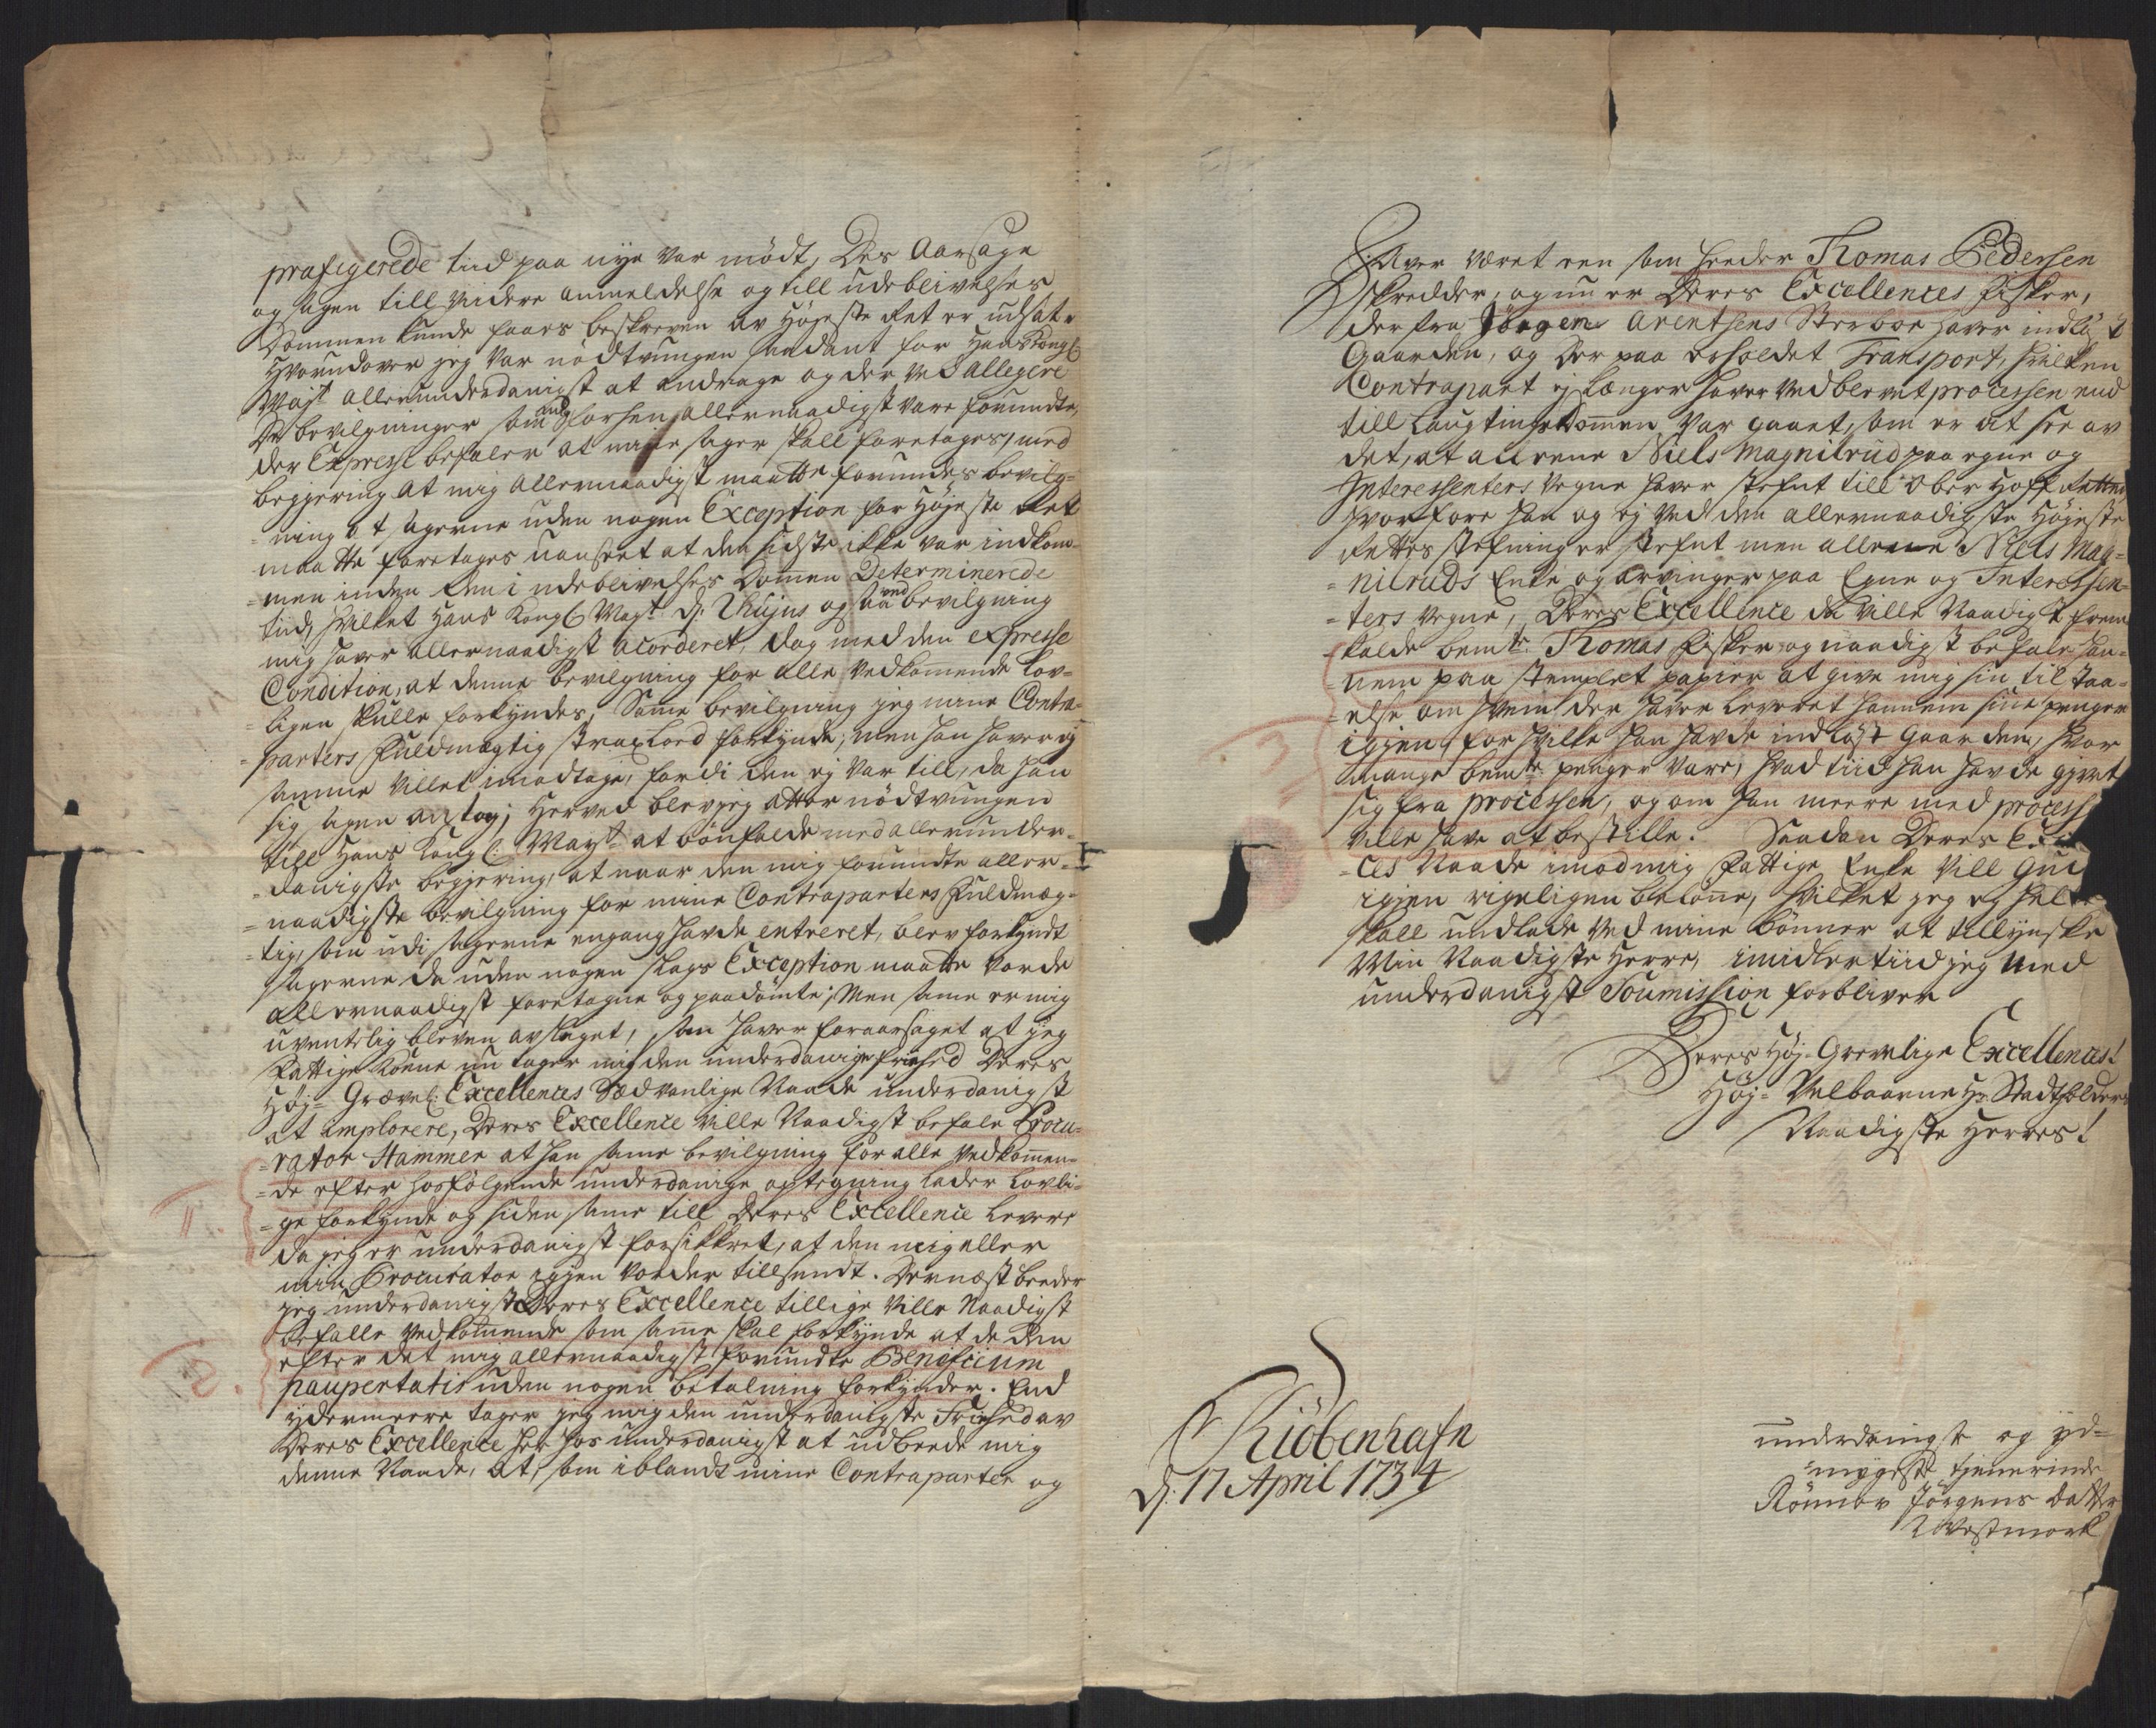 præfigerede tiid paa nye var mødt, Des Aarsage
og sagen till videre anmeldelse og till udeblivelses
Dommen kunde faaes beskreven av Høyeste Ret er udsat.
Hvorudover jeg var nødtvungen saadant for Hans Kongl
Mayst allerunderdanigst at andrage og der ved allegere
De bevilgninger som mig forhen allernaadigst vare forundte,
der Expresse befaler at mine sager skall foretages, med
begjering At mig Allernaadigst maatte forundes bevilg=
=ning at sagerne uden nogen Exception for Høyeste Ret
maatte foretages uanseet at den sidste ikke var indkom=
=men inden den i udeblivelses Domen Determinerede
tiid, hvilket Hans Kongl Mayst d: Thujus og saa ved bevilgning
mig haver allernaadigst acorderet, dog med den expresse
Condition, at denne bevilgning for alle vedkomende Lov=
=ligen skulle forkyndes, Same bevilgning jeg mine Contra=
=parters Fuldmægtig strax loed forkynde; men han haver ej
samme villet imodtage, fordi den ej var till, da han
sig sagen antog; Herved blev jeg atter nødtvungen
till Hans Kongl: Mayst at bønfalde med allerunder=
=danigste begjering, at naar den mig forundte aller=
=naadigste bevilgning for mine Contraparters Fuldmæg=
=tig, som udi sagerne engang havde entreret, blev forkyndt
sagerne da uden nogen slags Exception maatte vorde
allernaadigst foretagne og paadømte; Men same er mig
uventelig bleven avslaget, som haver foraarsaget at jeg
Fattige Kone nu tager mig den underdanige friehed Deres
Høy= Grævel: Excellences Sædvanlige Naade underdanigst
at implorere, Deres Excellence ville Naadigst befale Procu=
=rator Hammer at han same bevilgning for alle vedkomen=
=de efter hosfølgende underdanige optegning lader Lovli=
=ge forkynde og siden same till Deres Excellence levere
da jeg er underdanigst forsikkret, at den mig eller
min Procurator igien vorder tillsendt. Dernæst beeder
jeg underdanigst Deres Excellence tillige ville Naadigst
befalle vedkomende som same skal forkynde at de den
efter det mig allernaadigst forundte Beneficium
paupertatis uden nogen betalning forkynder. End
ydermeere tager jeg mig den underdanigste Friehed av
Deres Excellence her hos underdanigst at udbeede mig
denne Naade, at, som iblandt mine Contraparter og
1.
2.
Haver været een som heeder Thomas Pedersen
Skredder, og nu er Deres Excellences Fisker,
der fra Jørgen Arentsens Sterboe haver indløst
Gaarden, og der paa erholdet Transport, hvilken
Contrapart ej længer haver vedblevet processen end
till Laugtings Domen var gaaet, som er at see av
det, at allene Niels Magnilrud paa egne og
Interessenters vegne haver stefnt till Ober Hoff Retten
hvorfore han og ej ved den allernaadigste Høyeste
Rettes stefning er stefnt men allene Niels Mag=
=nilruds Enke og Arvinger paa Egne og Interessen=
=ters vegne, Deres Excellence da ville Naadigst frem
kalde bemte: Thomas Fisker og naadigst befale han=
=nem paa stemplet papier at give mig sin til staa=
=else om hvem der haver leveret hannem sine penger
igien, for hvilke han havde indløst Gaarden, hvor
mange bemte: penger vare, hvad tiid han havde givet
sig fra processen, og om han meere med process
ville have at bestille. Saadan Deres
ces Naade imod mig Fattige Enke vill Gud
igien rigeligen beløne, hvilket jeg og
skall undlade ved mine bønner at tillynske
Min Naadigste Herre, imidlertiid jeg med
underdanigst Soumission forbliver
3
Deres Høy= Grevelige Excellences!
Høy= Velbaarne Hr Stadtholders
Naadigste Herres!
Kiöbenhafn
d: 17 April 1734
underdanigst og yd=
=mygeste tienerinde
Rønnov Jørgens datter
Westmork